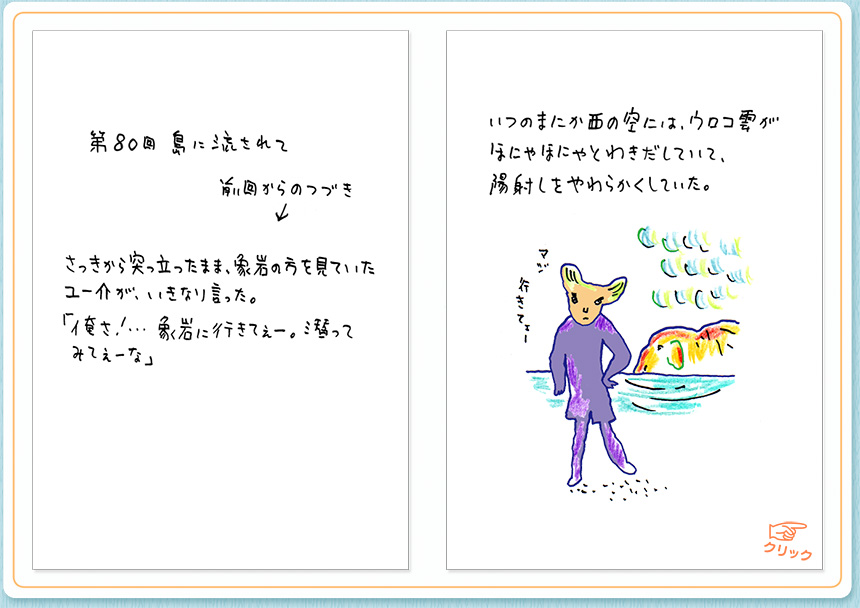 第80回 島に流されて
前回からのつづき
さっきから突っ立ったまま、象岩の方を見ていた
ユー介が、いきなり言った。
「俺さ!… 象岩に行きてぇー。潜って
みてぇーな」
いつのまにか西の空には、ウロコ雲が
ほにゃほにゃとわきだしていて、
陽射しをやわらかくしていた。
マジ
行きてェー
クリック